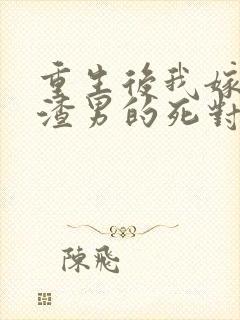 重生後我嫁
渣男的死對
陳飛